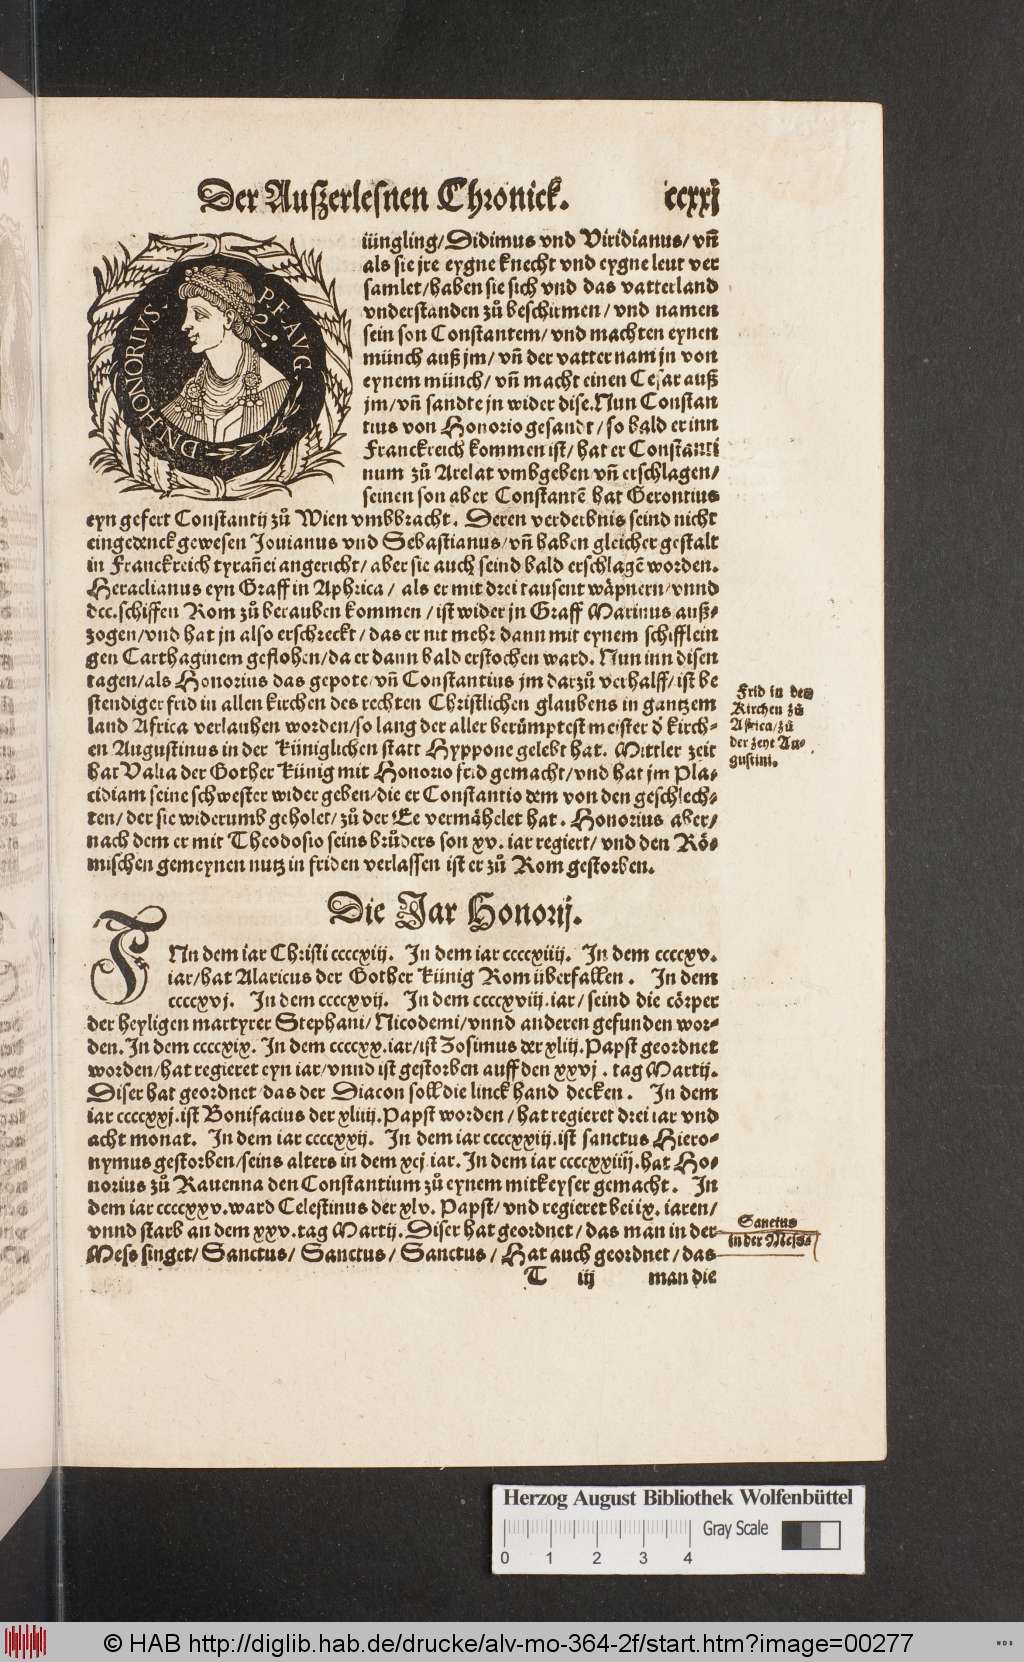 Der Außerlesnen Chronick. ccxxj
D N HONORIVS P. F. AVG
iüngling/ Didimus vnd Viridianus/ vñ
als sie jre eygne knecht vnd eygne leut ver
samlet/ haben sie sich vnd das vatterland
vnderstanden zů beschirmen/ vnd namen
sein son Constantem/ vnd machten eynen
münch auß jm/ vñ der vatter nam jn von
eynem münch/ vñ macht einen Cesar auß
jm/ vñ sandte jn wider dise. Nun Constan
tius von Honorio gesandt/ so bald er inn
Franckreich kommen ist/ hat er Constanti
num zů Arelat vmbgeben vñ erschlagen/
seinen son aber Constantē hat Gerontius
eyn gefert Constantij zů Wien vmbbracht. Deren verderbnis seind nicht
eingedenck gewesen Jouianus vnd Sebastianus/ vñ haben gleicher gestalt
in Franckreich tyrañei angericht/ aber sie auch seind bald erschlagē worden.
Heraclianus eyn Graff in Aphrica/ als er mit drei tausent wäpnern/ vnnd
dcc. schiffen Rom zů berauben kommen/ ist wider jn Graff Marinus auß-
zogen/ vnd hat jn also erschreckt/ das er nit mehr dann mit eynem schifflein
gen Carthaginem geflohen/ da er dann bald erstochen ward. Nun inn disen
tagen/ als Honorius das gepote/ vñ Constantius jm darzů verhalff/ ist be
stendiger frid in allen kirchen des rechten Christlichen glaubens in gantzem
land Africa verlauhen worden/ so lang der aller berůmptest meister d̕ kirch-
en Augustinus in der Küniglichen statt Hyppone gelebt hat. Mittler zeit
hat Valia der Gother Künig mit Honorio frid gemacht/ vnd hat jm Pla-
cidiam seine schwester wider geben/ die er Constantio dem von den geschlech-
ten/ der sie widerumb geholet/ zů der Ee vermähelet hat. Honorius aber/
nach dem er mit Theodosio seins brůders son xv. iar regiert/ vnd den Rö-
mischen gemeynen nutz in friden verlassen ist er zů Rom gestorben.
Frid in den
Kirchen zů
Africa/ zů
der zeyt Au-
gustini.
Die Jar Honorij.
INn dem iar Christi ccccxiij. In dem iar ccccxiiij. In dem ccccxv.
iar/ hat Alaricus der Gother Künig Rom überfallen. In dem
ccccxvj. In dem ccccxvij. In dem ccccxviij. iar/ seind die cörper
der heyligen martyrer Stephani/ Nicodemi/ vnnd anderen gefunden wor-
den. In dem ccccxix. In dem ccccxx. iar/ ist Zosimus der xliij. Papst geordnet
worden/ hat regieret eyn iar/ vnnd ist gestorben auff den xxvj. tag Martij.
Diser hat geordnet/ das der Diacon soll die linck hand decken. In dem
iar ccccxxj. ist Bonifacius der xliiij. Papst worden/ hat regieret drei iar vnd
acht monat. In dem iar ccccxxij. In dem iar ccccxxiij. ist sanctus Hiero-
nymus gestorben/ seins alters in dem xcj. iar. In dem iar ccccxxiiij. hat Ho-
norius zů Rauenna den Constantium zů eynem mitkeyser gemacht. In
dem iar ccccxxv. ward Celestinus der xlv. Papst/ vnd regieret bei ix. iaren/
vnnd starb an dem xxv. tag Martij. Diser hat geordnet/ das man in der
Mess singet/ Sanctus/ Sanctus/ Sanctus/ Hat auch geordnet/ das
Sanctus
in der Mess
T iij man die
Herzog August Bibliothek Wolfenbüttel
Gray Scale
0 1 2 3 4
© HAB http://diglib.hab.de/drucke/alv-mo-364-2f/start.htm?image=00277